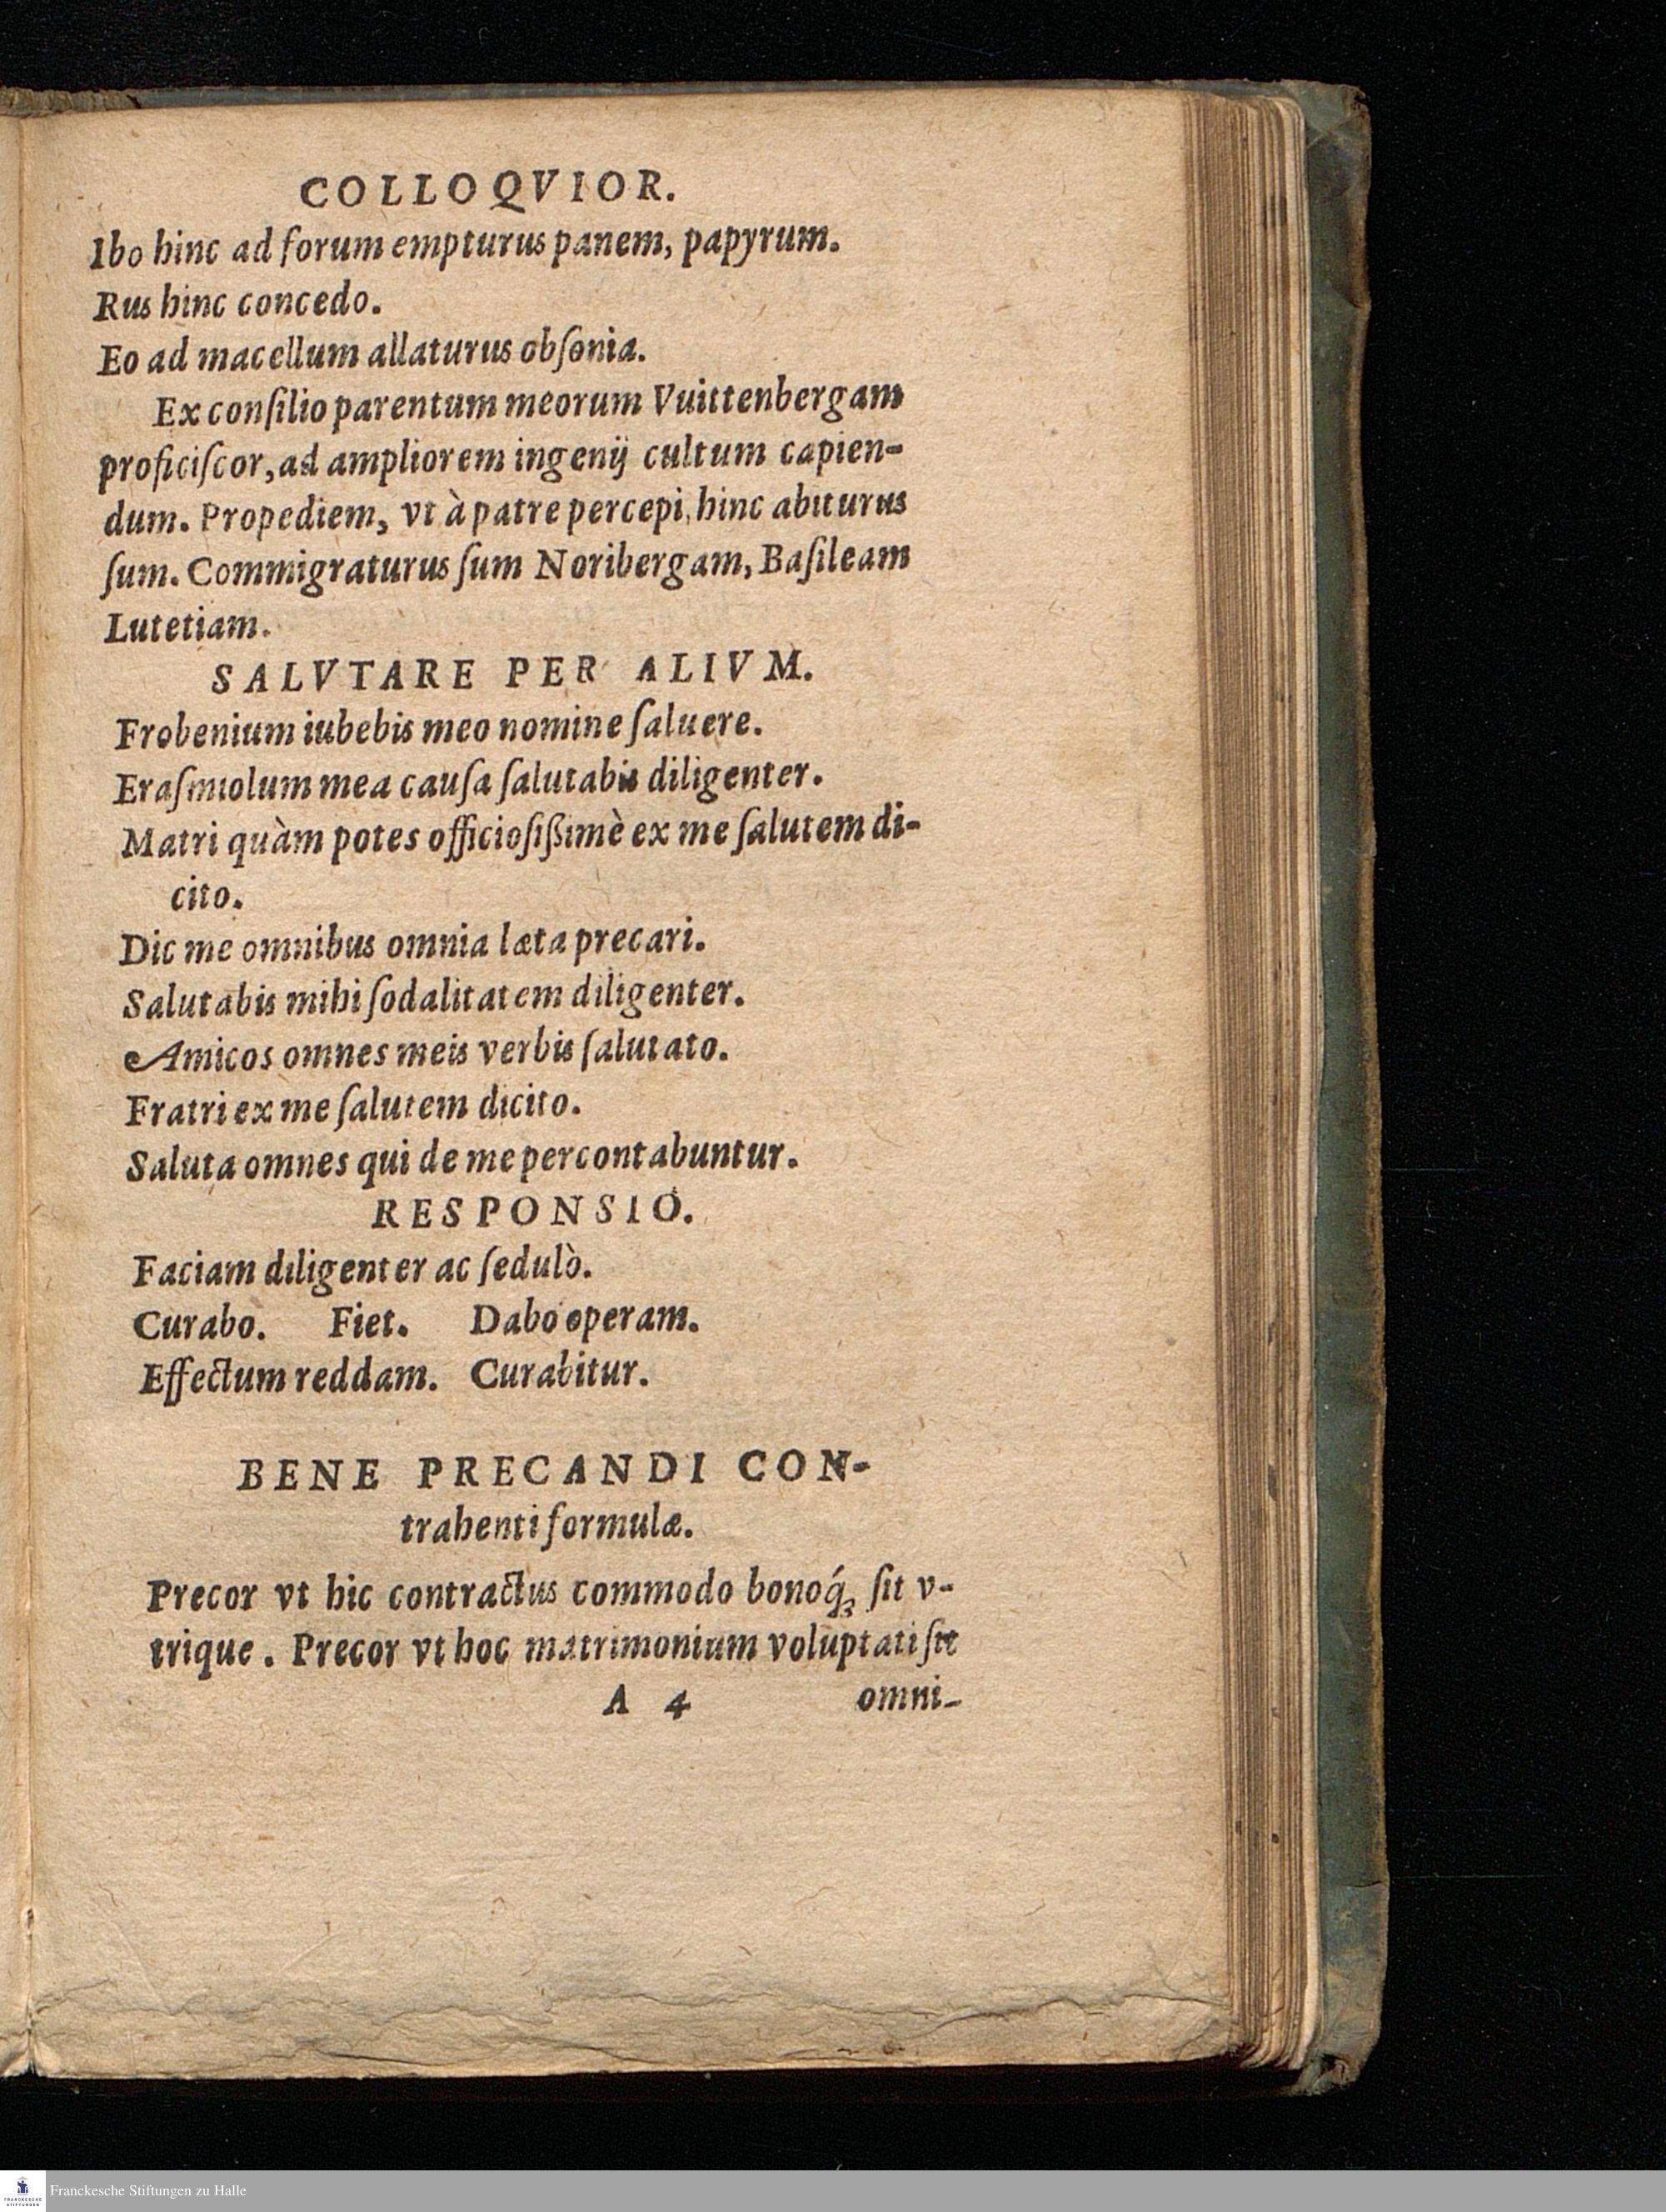 COLLOQVIOR.
Ibo hinc ad forum empturus panem, papyrum.
Rus hinc concedo.
Eo ad macellum allaturus obſonia.
Ex conſilio parentum meorum Vuittenbergam
proficiſcor, ad ampliorem ingenij cultum capien-
dum. Propediem, vt à patre percepi, hinc abiturus
ſum. Commigraturus ſum Noribergam, Baſileam
Lutetiam.
SALVTARE PER ALIVM.
Frobenium iubebis meo nomine ſaluere.
Eraſmiolum mea cauſa ſalutabis diligenter.
Matri quàm potes officioſißimè ex me ſalutem di-
cito.
Dic me omnibus omnia læta precari.
Salutabis mihi ſodalitatem diligenter.
Amicos omnes meis verbis ſalutato.
Fratri ex me ſalutem dicito.
Saluta omnes qui de me percontabuntur.
RESPONSIO.
Faciam diligenter ac ſedulò.
Curabo. Fiet. Dabo operam.
Effectum reddam. Curabitur.
BENE PRECANDI CON-
trahenti formulæ.
Precor vt hic contractus commodo bonoq́ꝫ ſit v-
trique. Precor vt hoc matrimonium voluptati ſit
A 4 omni-
FRANCKESCHE
STIFTUNGEN
Franckesche Stiftungen zu Halle